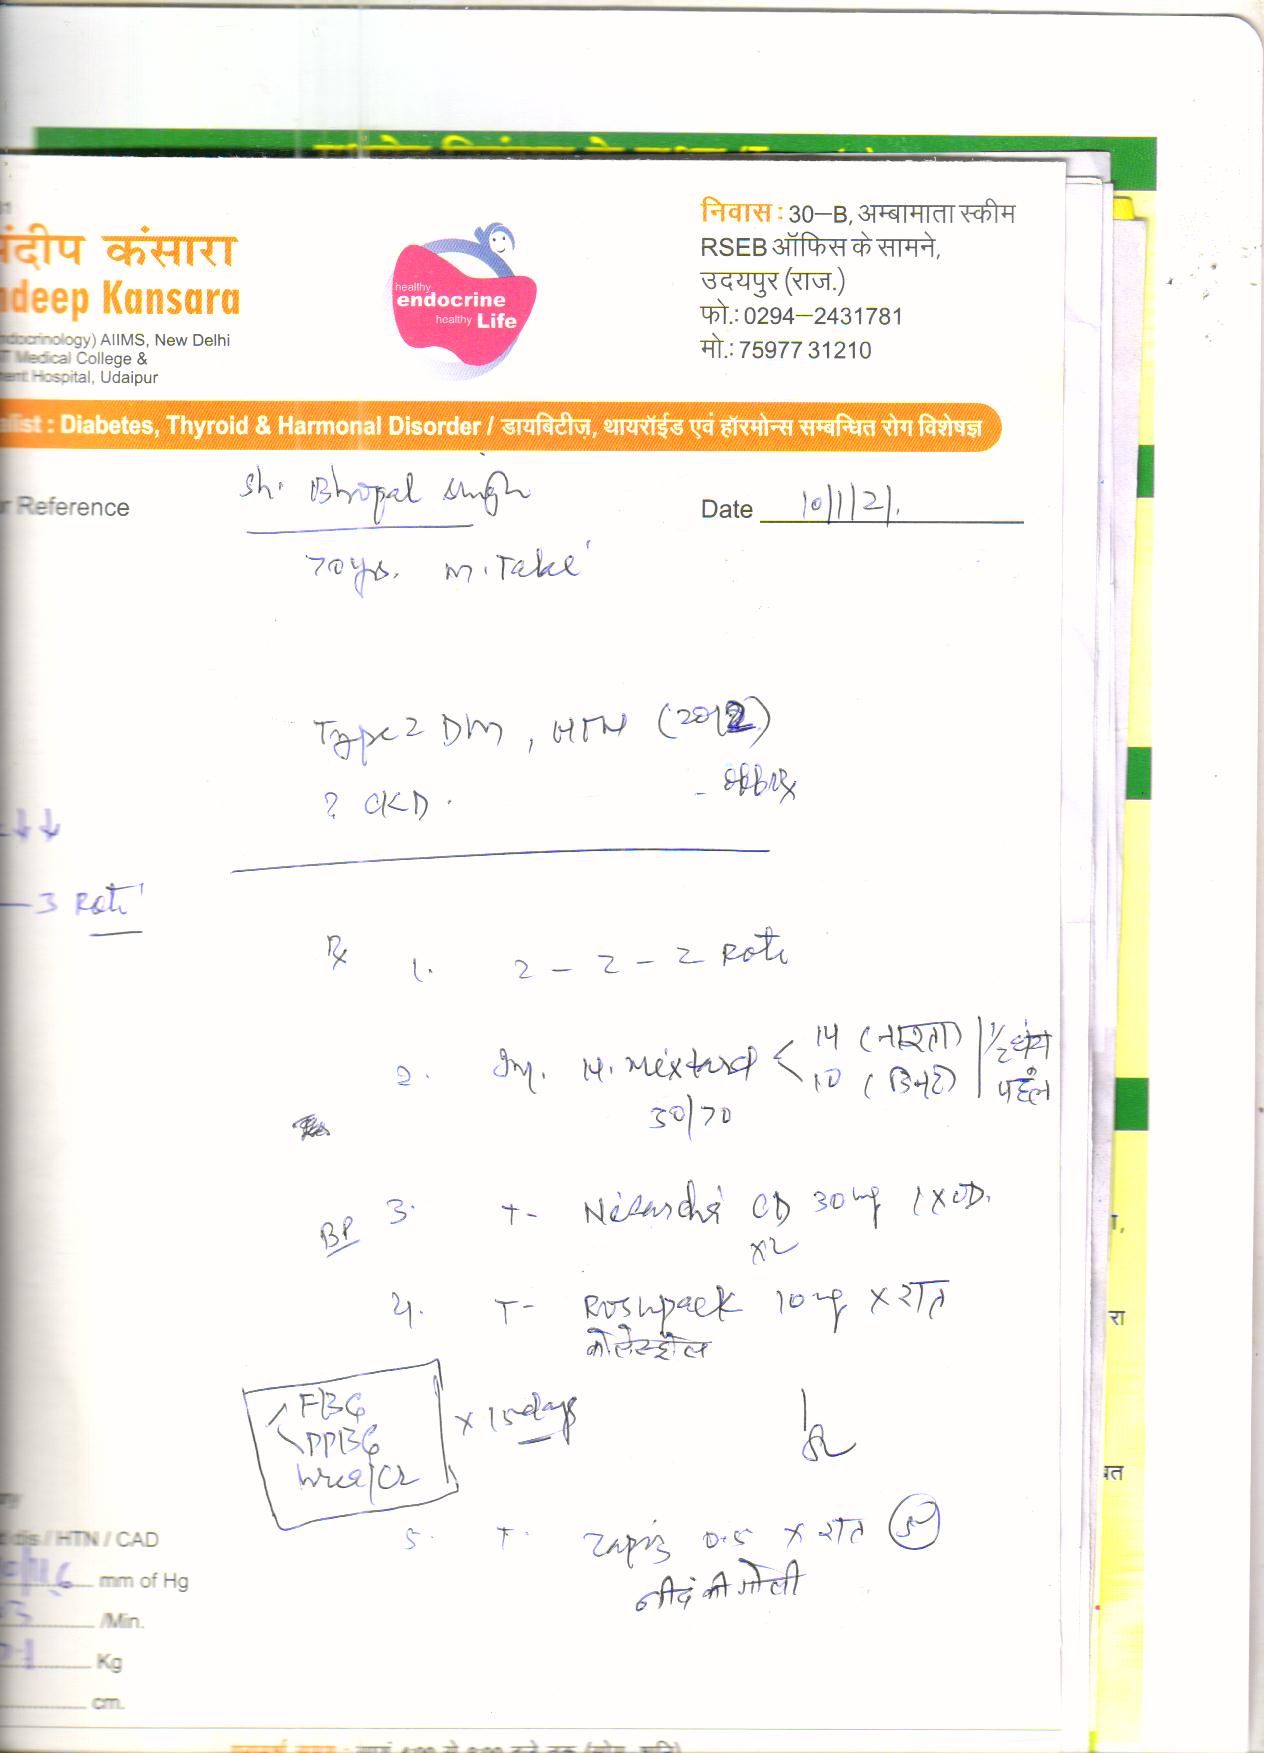 संदीप कंसारा
deep Kansara
AIIMS, New Delhi
Medical College &
Hospital, Udaipur
healthy
endocrine
healthy Life
निवास : 30–B, अम्बामाता स्कीम
RSEB ऑफिस के सामने,
उदयपुर (राज.)
फो.: 0294–2431781
मो.: 75977 31210
: Diabetes, Thyroid & Harmonal Disorder / डायबिटीज़, थायरॉईड एवं हॉरमोन्स सम्बन्धित रोग विशेषज्ञ
Reference
Sh. Bhopal Singh
Date 10/1/21.
70 ys.
Type 2 DM, HTN (2012)
? CKD.
3 Roti
Rx 1. 2 – 2 – 2 Roti
2. Inj. H. Mixtard < 14 (नाश्ता) | 1/2 घंटा
10 (डिनर) | पहले
30/70
BP 3. T- CD 30 mg 1 x OD.
x2
4. T- 10 mg x रात
कोलेस्ट्रोल
FBG
PPBG
Urea/Cr
x 15 days
5. T. Zapiz 0.5 x रात
नींद की गोली
dis / HTN / CAD
mm of Hg
/Min.
Kg
cm.